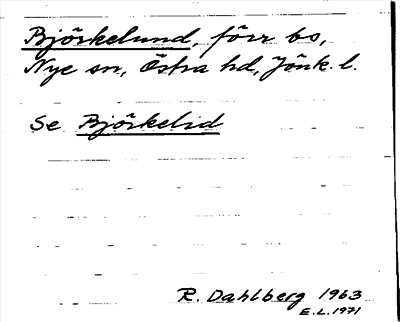 Björkelund, förr bs,
Nye sn, Östra hd, Jönk. l.
Se Björkelid
R. Dahlberg 1963
E.L. 1971